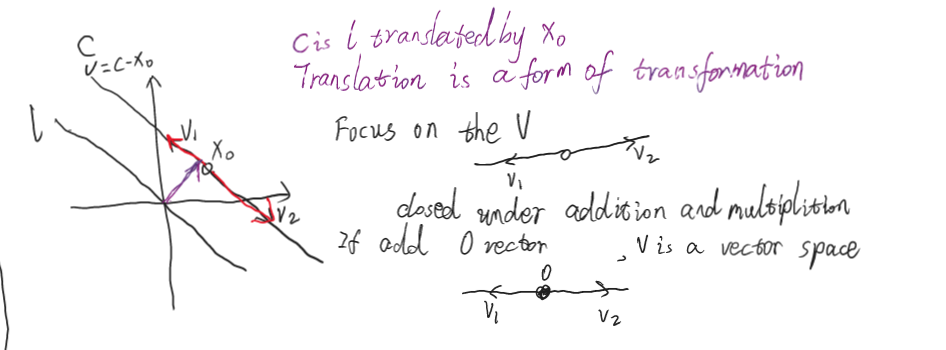 C is l translated by X₀
Translation is a form of transformation
C
V=C-X₀
l
V₁
X₀
V₂
Focus on the V
V₁
V₂
closed under addition and multiplition
If add 0 vector , V is a vector space
0
V₁
V₂